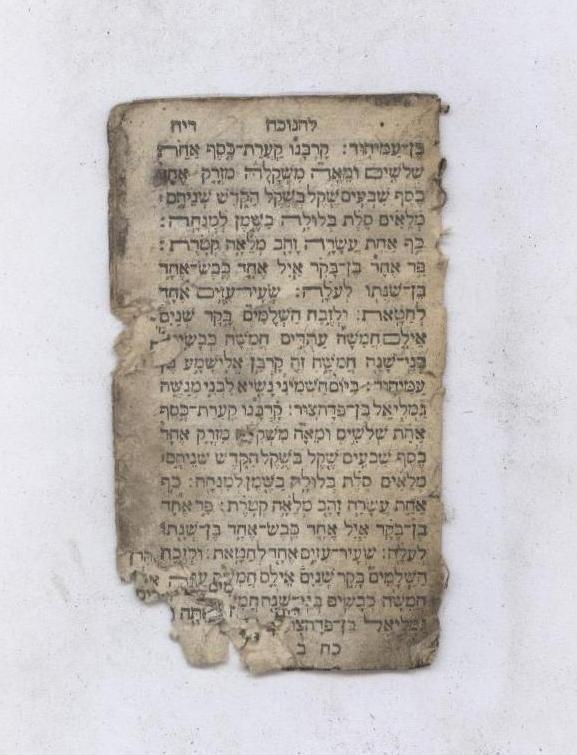 להנוכה ריח
בֶּן־עַמִּיהוּד: קָרְבָּנוֹ קַעֲרַת־כֶּסֶף אַחַת
שְׁלֹשִׁים וּמֵאָה מִשְׁקָלָהּ מִזְרָק אֶחָד
כֶּסֶף שִׁבְעִים שֶׁקֶל בְּשֶׁקֶל הַקֹּדֶשׁ שְׁנֵיהֶם
מְלֵאִים סֹלֶת בְּלוּלָה בַשֶּׁמֶן לְמִנְחָה:
כַּף אַחַת עֲשָׂרָה זָהָב מְלֵאָה קְטֹרֶת:
פַּר אֶחָד בֶּן־בָּקָר אַיִל אֶחָד כֶּבֶשׂ־אֶחָד
בֶּן־שְׁנָתוֹ לְעֹלָה: שְׂעִיר־עִזִּים אֶחָד
לְחַטָּאת: וּלְזֶבַח הַשְּׁלָמִים בָּקָר שְׁנַיִם
אֵילִם חֲמִשָּׁה עַתֻּדִים חֲמִשָּׁה כְּבָשִׂים
בְּנֵי־שָׁנָה חֲמִשָּׁה זֶה קָרְבַּן אֱלִישָׁמָע בֶּן
עַמִּיהוּד: בַּיּוֹם הַשְּׁמִינִי נָשִׂיא לִבְנֵי מְנַשֶּׁה
גַּמְלִיאֵל בֶּן־פְּדָהצוּר: קָרְבָּנוֹ קַעֲרַת־כֶּסֶף
אַחַת שְׁלֹשִׁים וּמֵאָה מִשְׁקָלָהּ מִזְרָק אֶחָד
כֶּסֶף שִׁבְעִים שֶׁקֶל בְּשֶׁקֶל הַקֹּדֶשׁ שְׁנֵיהֶם
מְלֵאִים סֹלֶת בְּלוּלָה בַשֶּׁמֶן לְמִנְחָה: כַּף
אַחַת עֲשָׂרָה זָהָב מְלֵאָה קְטֹרֶת: פַּר אֶחָד
בֶּן־בָּקָר אַיִל אֶחָד כֶּבֶשׂ־אֶחָד בֶּן־שְׁנָתוֹ
לְעֹלָה: שְׂעִיר־עִזִּים אֶחָד לְחַטָּאת: וּלְזֶבַח
הַשְּׁלָמִים בָּקָר שְׁנַיִם אֵילִם
חֲמִשָּׁה כְּבָשִׂים בְּנֵי־שָׁנָה
גַּמְלִיאֵל בֶּן־פְּדָהצוּר
כח ב